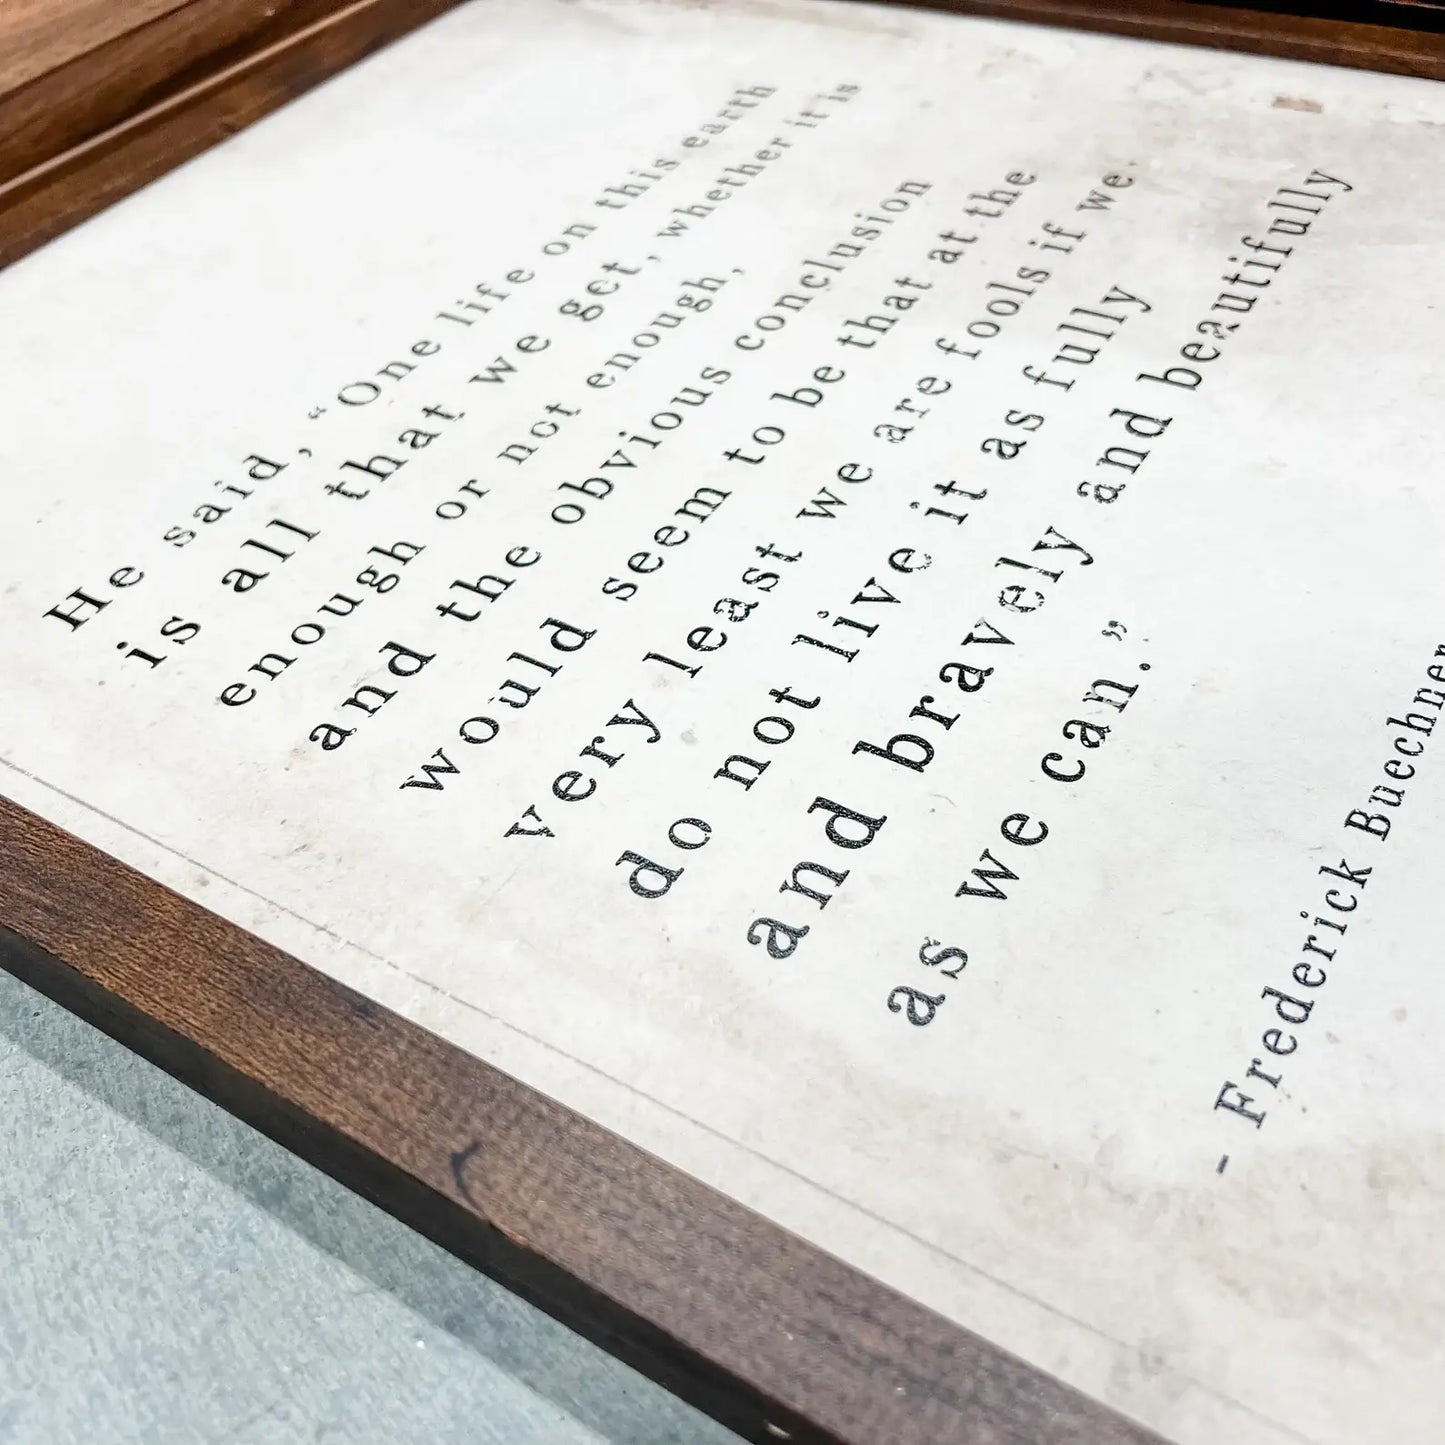 He said, “One life on this earth
is all that we get, whether it is
enough or not enough,
and the obvious conclusion
would seem to be that at the
very least we are fools if we
do not live it as fully
and bravely and beautifully
as we can.”
- Frederick Buechner